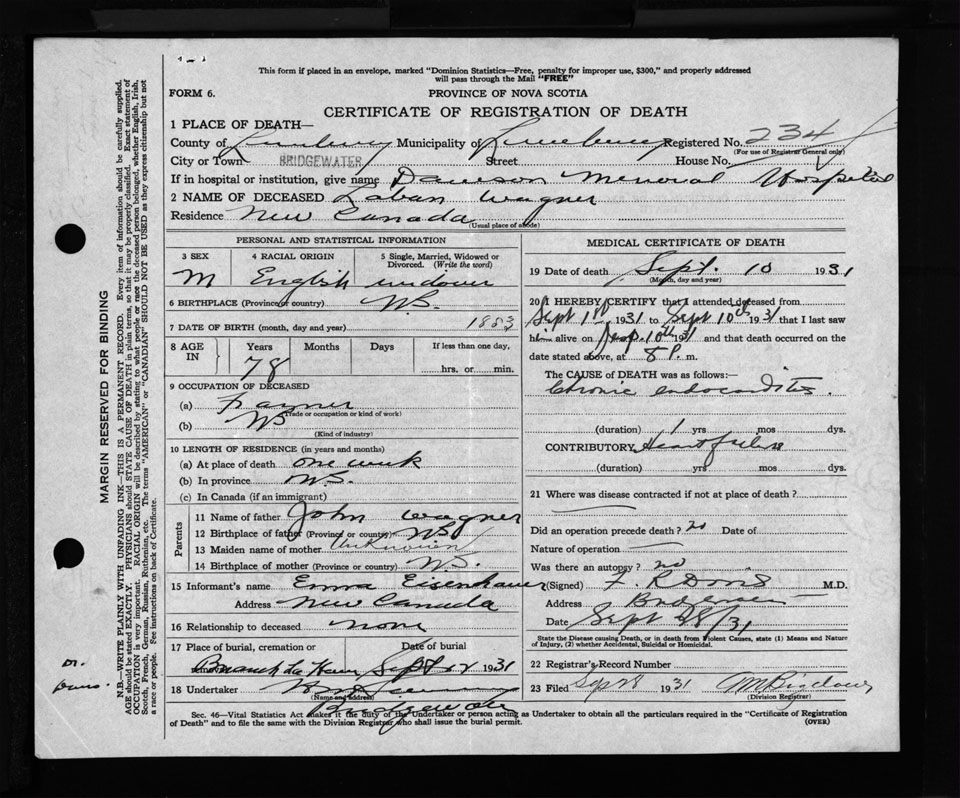 This form if placed in an envelope, marked "Dominion Statistics—Free, penalty for improper use, $300," and properly addressed
will pass through the Mail "FREE"
FORM 6.
PROVINCE OF NOVA SCOTIA
CERTIFICATE OF REGISTRATION OF DEATH
1 PLACE OF DEATH—
County of Lunenburg Municipality of Lunenburg Registered No. 234
(For use of Registrar General only)
City or Town BRIDGEWATER Street House No.
If in hospital or institution, give name Dawson Memorial Hospital
2 NAME OF DECEASED Laban Wagner
Residence New Canada
(Usual place of abode)
PERSONAL AND STATISTICAL INFORMATION
3 SEX 4 RACIAL ORIGIN 5 Single, Married, Widowed or Divorced. (Write the word)
M English widower
6 BIRTHPLACE (Province or country) N.S.
7 DATE OF BIRTH (month, day and year) 1853
8 AGE IN Years Months Days If less than one day,
78 hrs. or min.
9 OCCUPATION OF DECEASED
(a) Farmer
(Trade or occupation or kind of work)
(b) NS
(Kind of industry)
10 LENGTH OF RESIDENCE (in years and months)
(a) At place of death one week
(b) In province N.S.
(c) In Canada (if an immigrant)
Parents
11 Name of father John Wagner
12 Birthplace of father (Province or country) NS
13 Maiden name of mother Unknown
14 Birthplace of mother (Province or country) N.S.
15 Informant's name Emma Eisenhauer
Address New Canada
16 Relationship to deceased none
17 Place of burial, cremation or Date of burial
Branch La Have Sept 12 1931
18 Undertaker
(Name and address)
Bridgewater
MEDICAL CERTIFICATE OF DEATH
19 Date of death Sept. 10 1931
(Month, day and year)
20 I HEREBY CERTIFY that I attended deceased from
Sept 1st 1931 to Sept 10th 1931 that I last saw
him alive on Sept. 10th 1931 and that death occurred on the
date stated above, at 8 P. m.
The CAUSE of DEATH was as follows:—
Chronic endocarditis.
(duration) 1 yrs mos dys.
CONTRIBUTORY Heart failure
(duration) yrs. mos. dys.
21 Where was disease contracted if not at place of death?
Did an operation precede death? no Date of
Nature of operation
Was there an autopsy? no
(Signed) F. R. Davis M.D.
Address Bridgewater
Date Sept 28/31
State the Disease causing Death, or in death from Violent Causes, state (1) Means and Nature
of Injury, (2) whether Accidental, Suicidal or Homicidal.
22 Registrar's Record Number
23 Filed Sep 28 1931
(Division Registrar)
Sec. 46—Vital Statistics Act makes it the duty of the Undertaker or person acting as Undertaker to obtain all the particulars required in the "Certificate of Registration
of Death" and to file the same with the Division Registrar who shall issue the burial permit.
(OVER)
MARGIN RESERVED FOR BINDING
N.B.—WRITE PLAINLY WITH UNFADING INK—THIS IS A PERMANENT RECORD. Every item of information should be carefully supplied.
AGE should be stated EXACTLY. PHYSICIANS should STATE CAUSE OF DEATH in plain terms, so that it may be properly classified. Exact statement of
OCCUPATION is very important. RACIAL ORIGIN will be described by stating to what people or race the deceased person belonged, whether English, Irish,
Scotch, French, German, Russian, Ruthenian, etc. The terms "AMERICAN" or "CANADIAN" SHOULD NOT BE USED as they express citizenship but not
a race or people. See instructions on back of Certificate.
Dr.
Davis.